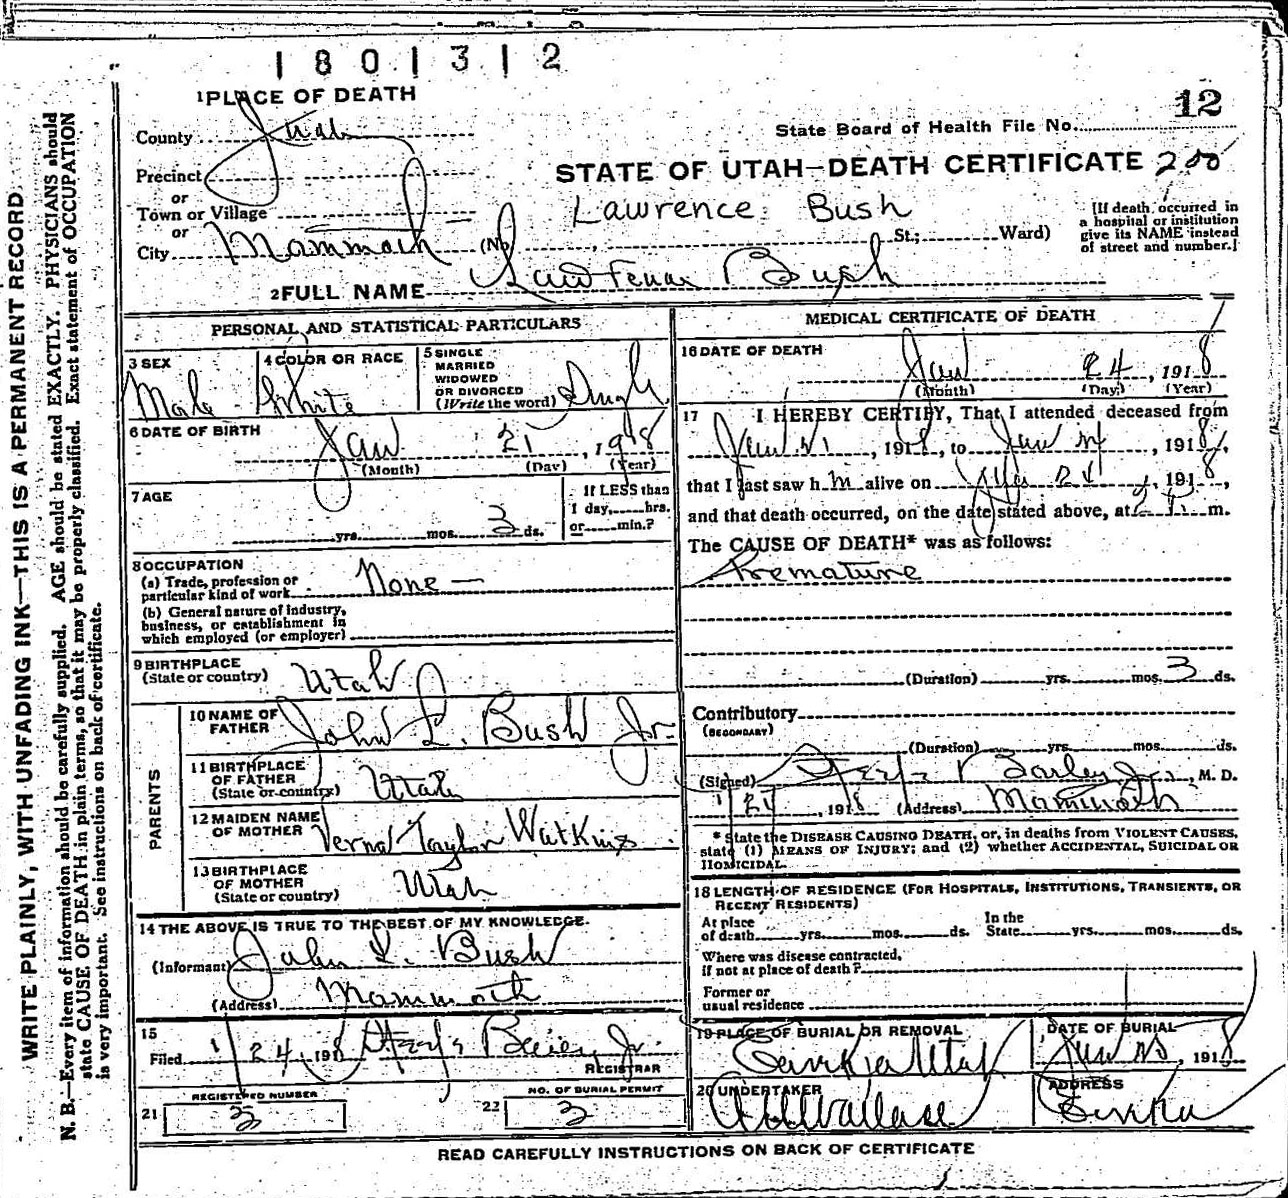 1801312
1 PLACE OF DEATH
12
County Juab
State Board of Health File No.
Precinct
STATE OF UTAH—DEATH CERTIFICATE 200
or
Town or Village
Lawrence Bush
or
City Mammoth (No. St.; Ward)
[If death occurred in
a hospital or institution
give its NAME instead
of street and number.]
2 FULL NAME Lawrence Bush
PERSONAL AND STATISTICAL PARTICULARS
3 SEX
Male
4 COLOR OR RACE
White
5 SINGLE
MARRIED
WIDOWED
OR DIVORCED
(Write the word) Single
6 DATE OF BIRTH
Jan 21, 1918
(Month) (Day) (Year)
7 AGE
yrs. mos. 3 ds.
If LESS than
1 day, hrs.
or min.?
8 OCCUPATION
(a) Trade, profession or
particular kind of work None —
(b) General nature of industry,
business, or establishment in
which employed (or employer)
9 BIRTHPLACE
(State or country) Utah
PARENTS
10 NAME OF
FATHER John L. Bush Jr.
11 BIRTHPLACE
OF FATHER
(State or country) Utah
12 MAIDEN NAME
OF MOTHER Verna Taylor Watkins
13 BIRTHPLACE
OF MOTHER
(State or country) Utah
14 THE ABOVE IS TRUE TO THE BEST OF MY KNOWLEDGE.
(Informant) John L. Bush
(Address) Mammoth
15
Filed 1/24, 1918 Bailey, Jr.
REGISTRAR
REGISTERED NUMBER
21 3
NO. OF BURIAL PERMIT
22 3
MEDICAL CERTIFICATE OF DEATH
16 DATE OF DEATH
Jan 24, 1918
(Month) (Day) (Year)
17 I HEREBY CERTIFY, That I attended deceased from
Jan 21, 1918, to Jan 24, 1918,
that I last saw h m alive on Jan 24, 1918,
and that death occurred, on the date stated above, at 2 m.
The CAUSE OF DEATH* was as follows:
Premature
(Duration) yrs. mos. 3 ds.
Contributory
(SECONDARY)
(Duration) yrs. mos. ds.
(Signed) Bailey Jr., M. D.
1/24, 1918 (Address) Mammoth
* State the DISEASE CAUSING DEATH, or, in deaths from VIOLENT CAUSES,
state (1) MEANS OF INJURY; and (2) whether ACCIDENTAL, SUICIDAL OR
HOMICIDAL.
18 LENGTH OF RESIDENCE (FOR HOSPITALS, INSTITUTIONS, TRANSIENTS, OR
RECENT RESIDENTS)
At place
of death yrs. mos. ds.
In the
State yrs. mos. ds.
Where was disease contracted,
if not at place of death?
Former or
usual residence
19 PLACE OF BURIAL OR REMOVAL
Eureka Utah
DATE OF BURIAL
Jan 25, 1918
20 UNDERTAKER
Wallace
ADDRESS
Eureka
READ CAREFULLY INSTRUCTIONS ON BACK OF CERTIFICATE
WRITE PLAINLY, WITH UNFADING INK—THIS IS A PERMANENT RECORD.
N. B.—Every item of information should be carefully supplied. AGE should be stated EXACTLY. PHYSICIANS should
state CAUSE OF DEATH in plain terms, so that it may be properly classified. Exact statement of OCCUPATION
is very important. See instructions on back of certificate.